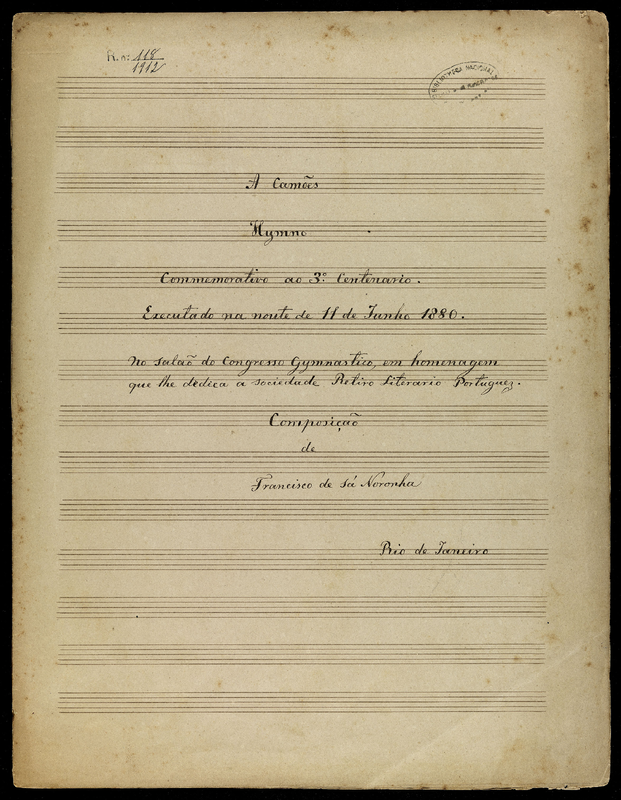 R. nº 118
1912
BIBLIOTHECA NACIONAL
A Camões
Hymno
Commemorativo ao 3º Centenario.
Executado na noute de 11 de Junho 1880.
No salaõ do Congresso Gymnastico, em homenagem
que lhe dedeca a sociedade Retiro Literario Portuguez.
Composição
de
Francisco de Sá Noronha
Rio de Janeiro